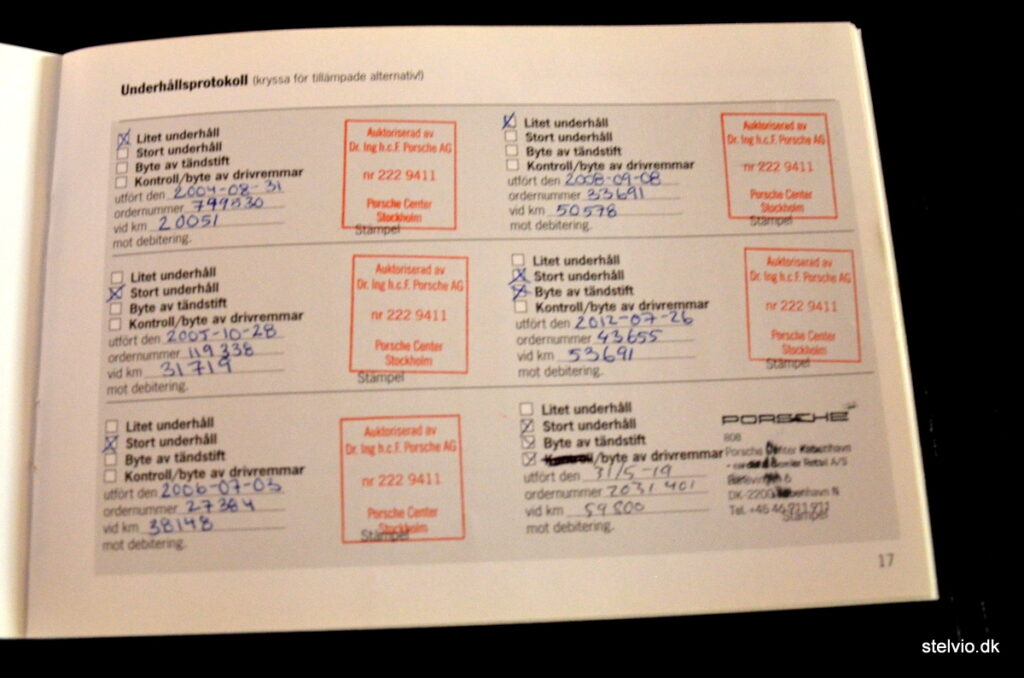 Underhållsprotokoll (kryssa för tillämpade alternativ!)
Litet underhåll
Stort underhåll
Byte av tändstift
Kontroll/byte av drivremmar
utfört den 2004-08-31
ordernummer 749530
vid km 20051
mot debitering.
Auktoriserad av
Dr. Ing h.c.F. Porsche AG
nr 222 9411
Porsche Center
Stockholm
Stämpel
Litet underhåll
Stort underhåll
Byte av tändstift
Kontroll/byte av drivremmar
utfört den 2005-10-28
ordernummer 119338
vid km 31719
mot debitering.
Auktoriserad av
Dr. Ing h.c.F. Porsche AG
nr 222 9411
Porsche Center
Stockholm
Stämpel
Litet underhåll
Stort underhåll
Byte av tändstift
Kontroll/byte av drivremmar
utfört den 2006-07-03
ordernummer 27384
vid km 38148
mot debitering.
Auktoriserad av
Dr. Ing h.c.F. Porsche AG
nr 222 9411
Porsche Center
Stockholm
Stämpel
Litet underhåll
Stort underhåll
Byte av tändstift
Kontroll/byte av drivremmar
utfört den 2008-09-08
ordernummer 33691
vid km 50578
mot debitering.
Auktoriserad av
Dr. Ing h.c.F. Porsche AG
nr 222 9411
Porsche Center
Stockholm
Stämpel
Litet underhåll
Stort underhåll
Byte av tändstift
Kontroll/byte av drivremmar
utfört den 2012-07-26
ordernummer 43655
vid km 53691
mot debitering.
Auktoriserad av
Dr. Ing h.c.F. Porsche AG
nr 222 9411
Porsche Center
Stockholm
Stämpel
Litet underhåll
Stort underhåll
Byte av tändstift
/byte av drivremmar
utfört den 31/5-19
ordernummer 2031401
vid km 59800
mot debitering.
PORSCHE
808
Porsche Center København
Retail A/S
6
DK-2200 København N
Tel. +45 46 911 911
Stämpel
17
stelvio.dk